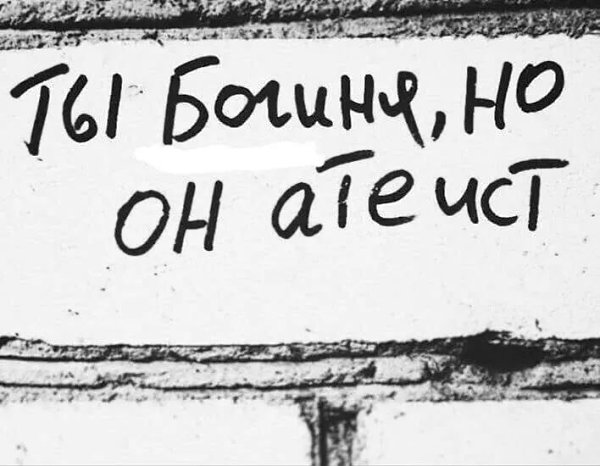 ты Богиня, но
он атеист